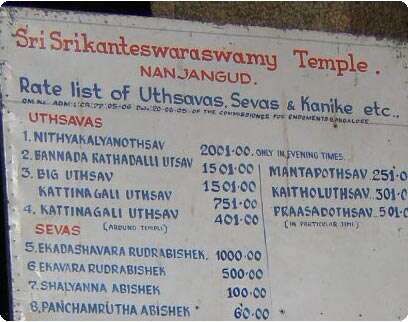 Sri Srikanteswaraswamy Temple.
NANJANGUD.
Rate list of Uthsavas, Sevas & Kanike etc..,
OF THE COMMISSIONER FOR ENDOMENTS BANGALORE
UTHSAVAS
1. NITHYAKALYANOTHSAV 2001.00. ONLY IN EVENING TIMES.
2. BANNADA RATHADALLI UTSAV 1501.00
3. BIG UTHSAV 1501.00
KATTINAGALI UTHSAV 751.00
4. KATTINAGALI UTHSAV 401.00
(AROUND TEMPLE)
MANTAPOTHSAV 251.0
KAITHOLUTHSAV 301.0
PRAASADOTHSAV 501.0
(IN PARTICULAR TIME)
SEVAS
5. EKADASHAVARA RUDRABISHEK. 1000.00
6. EKAVARA RUDRABISHEK 500.00
7. SHALYANNA ABISHEK 100.00
8. PANCHAMRUTHA ABISHEK 60.00